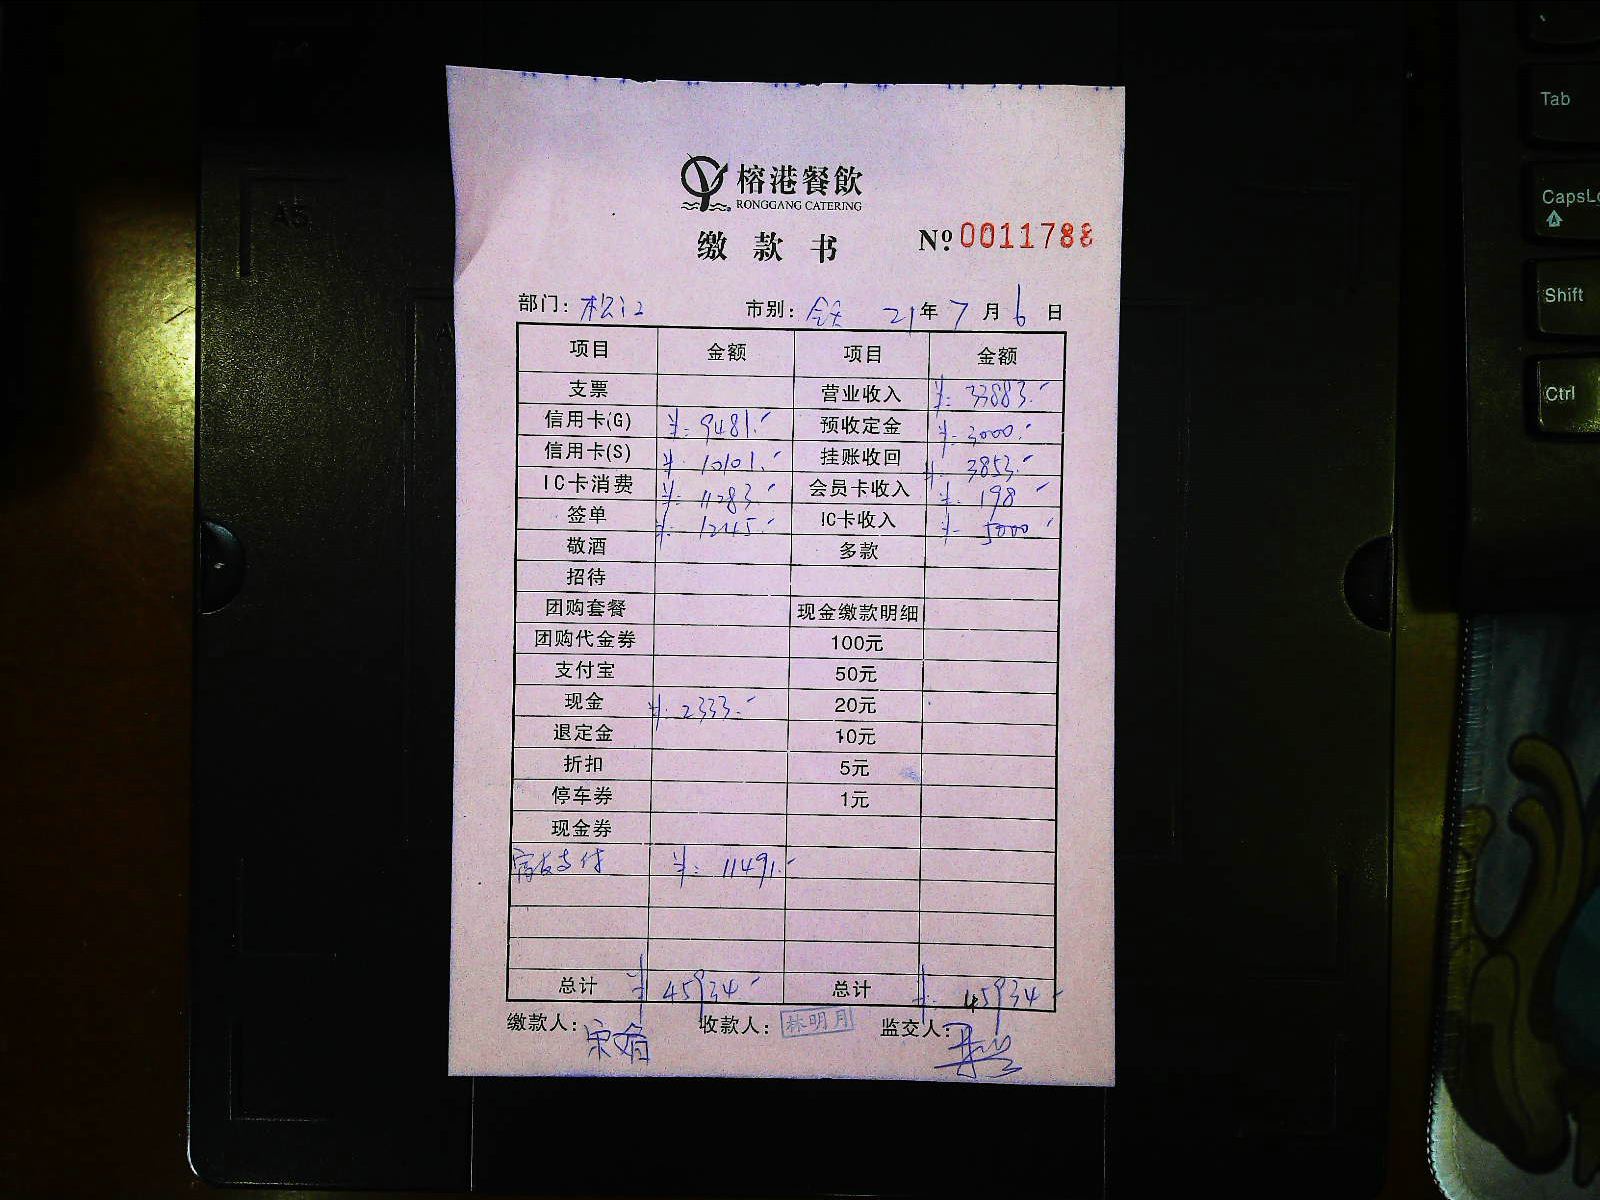 榕港餐飲
RONGGANG CATERING
缴款书 № 0011788
部门: 松江 市别: 全天 21年 7月 6日
项目 金额 项目 金额
支票 营业收入 ¥: 33883.-
信用卡(G) ¥: 9481.- 预收定金 ¥: 3000.-
信用卡(S) ¥: 10101.- 挂账收回 ¥: 3853.-
IC卡消费 ¥: 11283.- 会员卡收入 ¥: 198 -
签单 ¥: 1245.- IC卡收入 ¥: 5000 -
敬酒 多款
招待
团购套餐 现金缴款明细
团购代金券 100元
支付宝 50元
现金 ¥: 2333.- 20元
退定金 10元
折扣 5元
停车券 1元
现金券
支付 ¥: 11491.-
总计 ¥: 45934 - 总计 ¥: 45934 -
缴款人: 收款人: 林明月 监交人:
Tab
CapsLo
Shift
Ctrl